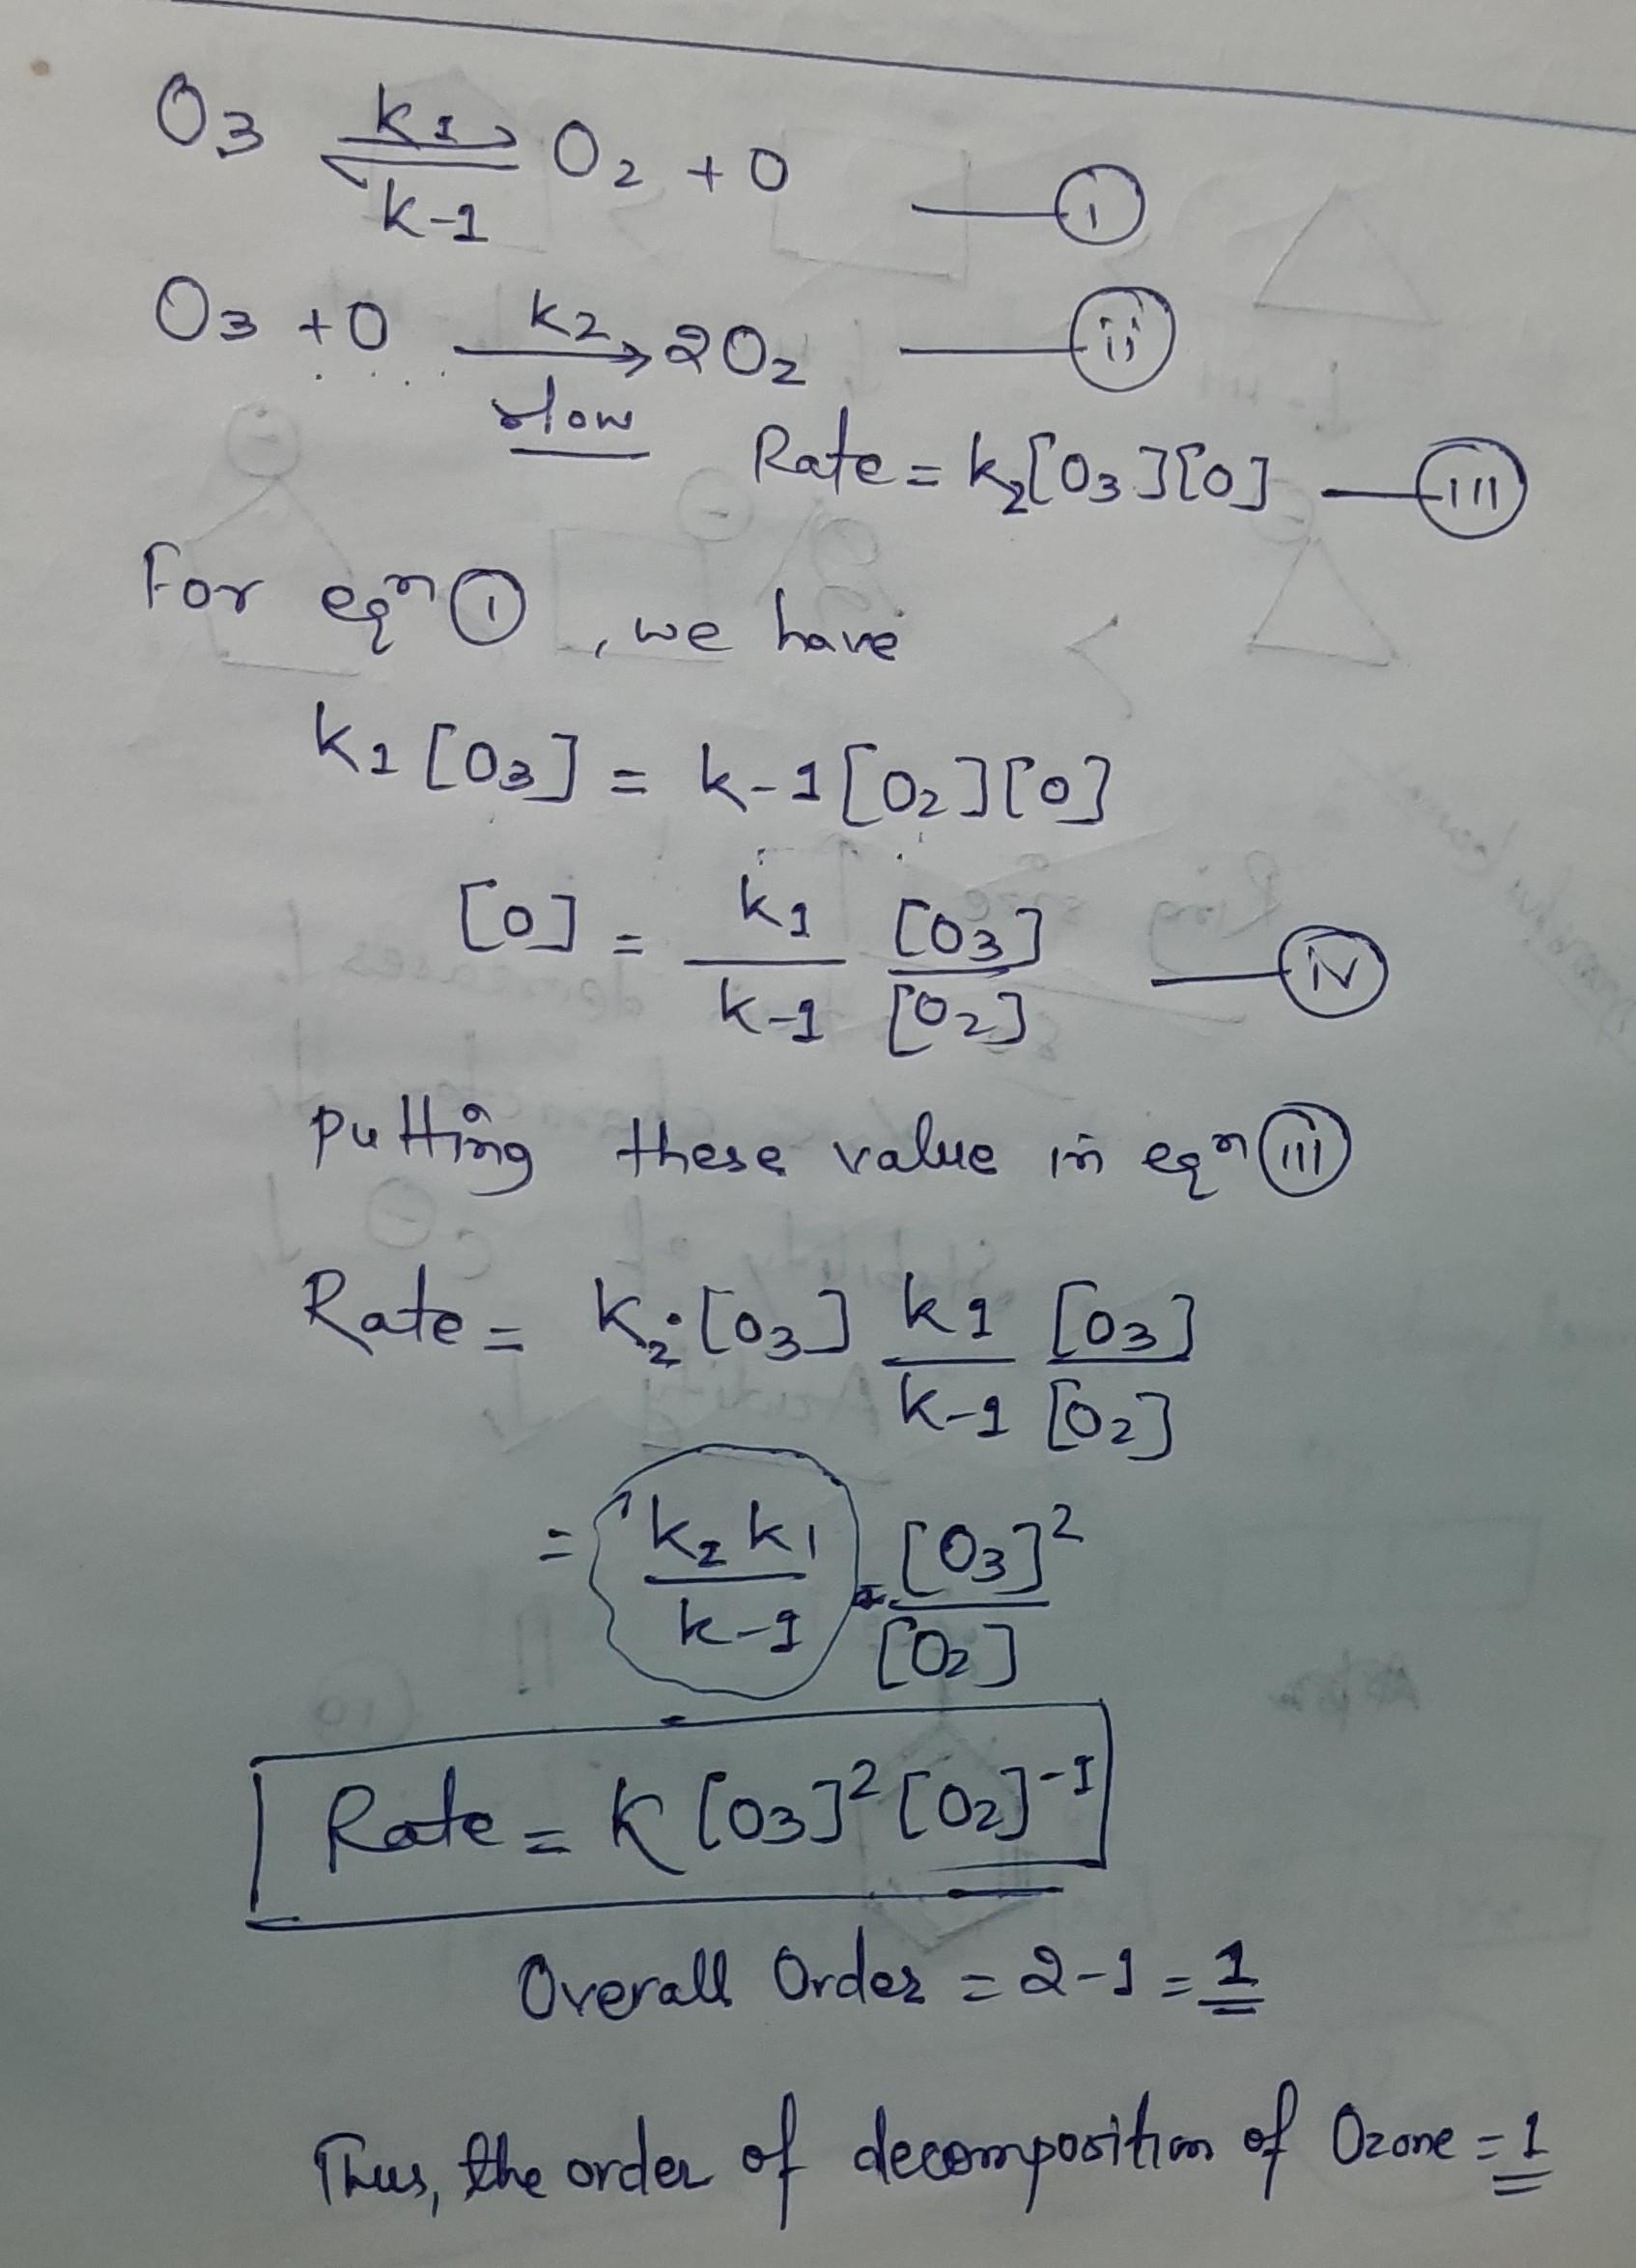 O₃ ⇌ O₂ + O — (i)
k₁
k-1
O₃ + O → 2O₂ — (ii)
k₂
slow
Rate = k₂[O₃][O] — (iii)
For eqⁿ (i), we have
k₁ [O₃] = k-1 [O₂][O]
[O] = k₁/k-1 [O₃]/[O₂] — (iv)
putting these value in eqⁿ (iii)
Rate = k₂ · [O₃] k₁/k-1 [O₃]/[O₂]
= k₂ k₁/k-1 · [O₃]²/[O₂]
Rate = K [O₃]² [O₂]⁻¹
Overall Order = 2-1 = 1
Thus, the order of decomposition of Ozone = 1